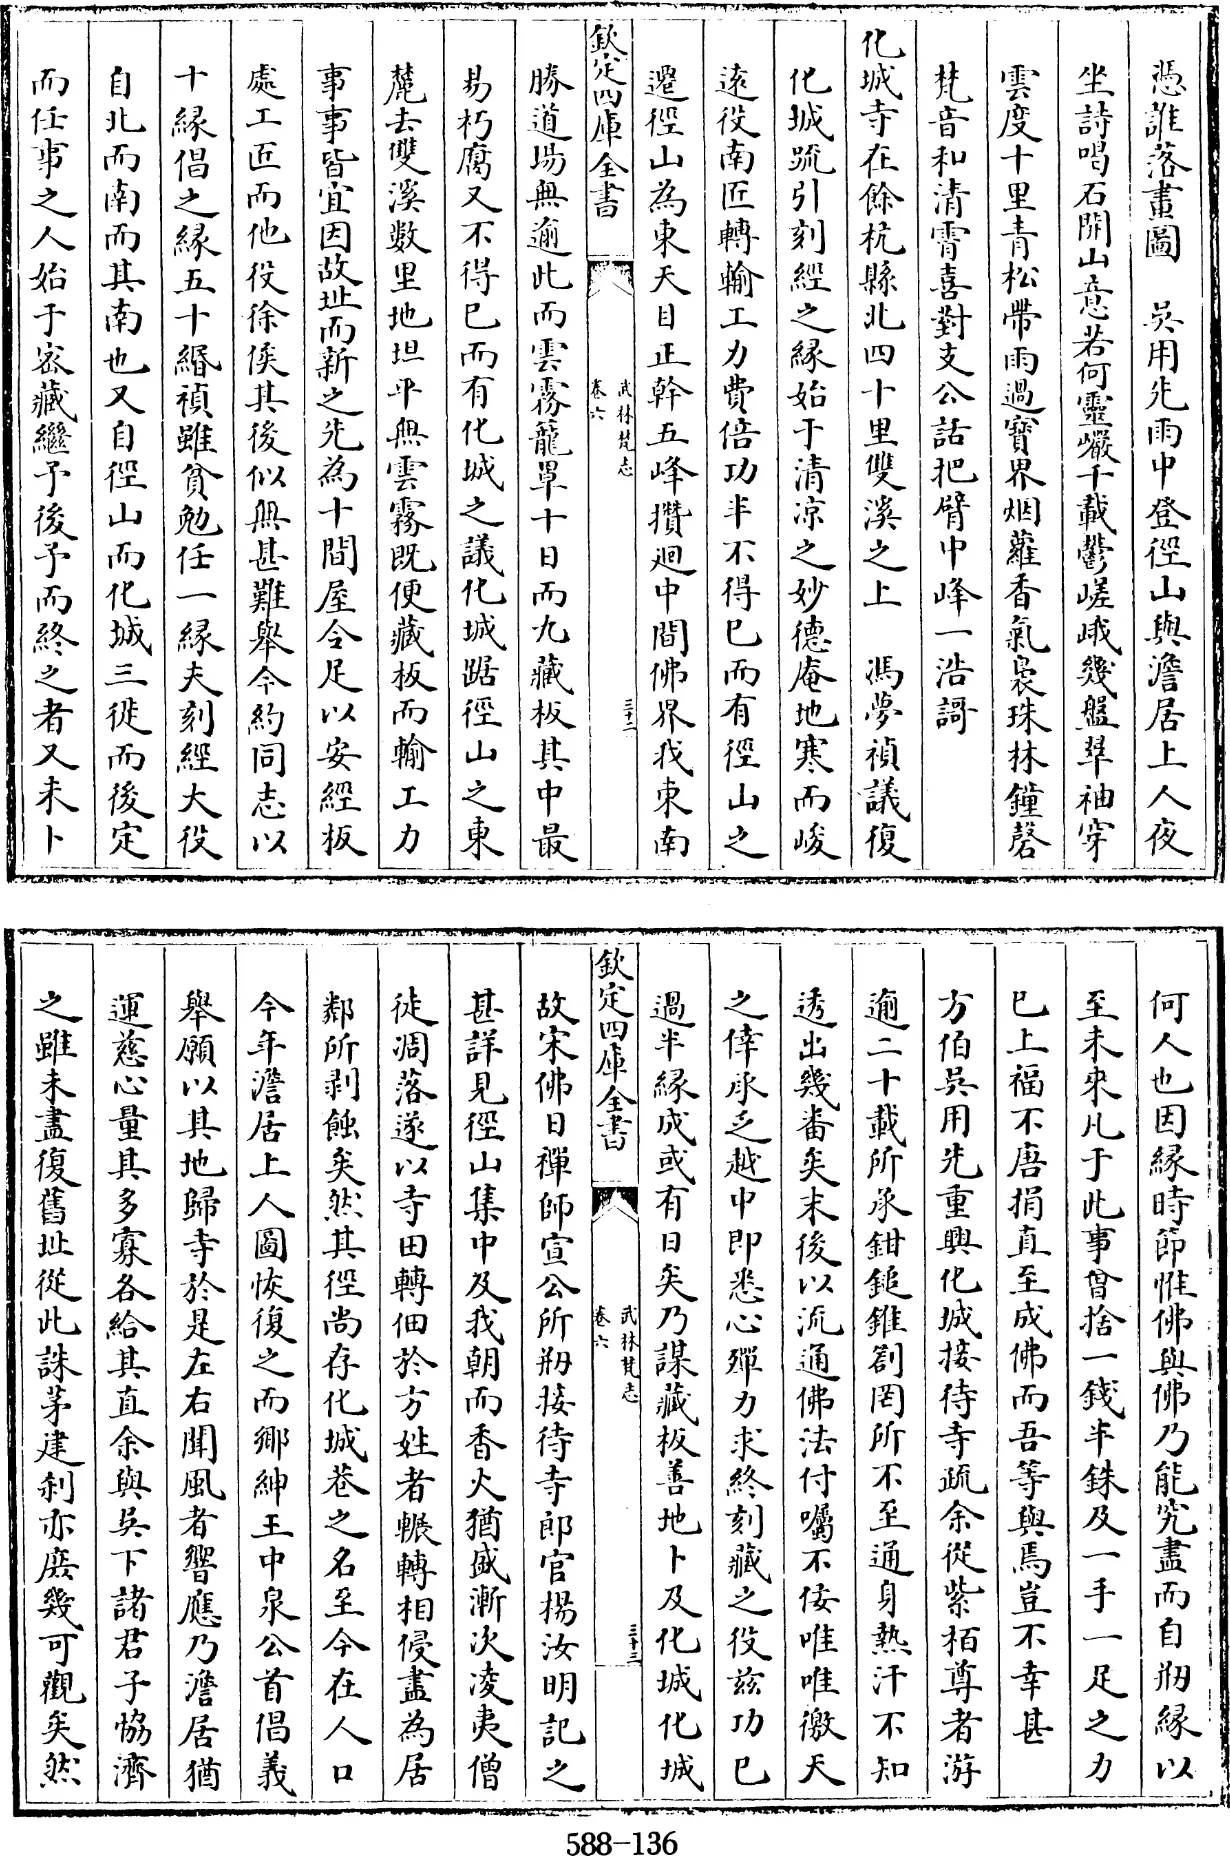 憑誰落畫圖　吳用先雨中登徑山與澹居上人夜
坐詩喝石開山意若何靈巖千載鬱嵯峨幾盤翠袖穿
雲度十里青松帶雨過寶界烟蘿香氣裊珠林鐘磬
梵音和清霄喜對支公話把臂中峰一浩謌
化城寺在餘杭縣北四十里雙溪之上　馮夢禎議復
化城疏引刻經之緣始于清凉之妙德庵地寒而峻
遠役南匠轉輸工力費倍功半不得已而有徑山之
遷徑山為東天目正幹五峰攢迴中間佛界我東南
欽定四庫全書
武林梵志
卷六
三十二
勝道場無逾此而雲霧籠罩十日而九藏板其中最
易朽腐又不得已而有化城之議化城踞徑山之東
麓去雙溪數里地坦平無雲霧既便藏板而輸工力
事事皆宜因故址而新之先為十間屋令足以安經板
處工匠而他役徐俟其後似無甚難舉今約同志以
十緣倡之緣五十緡禎雖貧勉任一緣夫刻經大役
自北而南而其南也又自徑山而化城三徙而後定
而任事之人始于密藏繼予後予而終之者又未卜
何人也因緣時節惟佛與佛乃能究盡而自剏緣以
至未來凡于此事曾捨一錢半銖及一手一足之力
已上福不唐捐直至成佛而吾等與焉豈不幸甚
方伯吳用先重興化城接待寺疏余從紫栢尊者游
逾二十載所承鉗鎚錐劄罔所不至通身熱汗不知
透出幾番矣末後以流通佛法付囑不佞唯唯徼天
之倖承乏越中即悉心殫力求終刻藏之役兹功已
過半緣成或有日矣乃謀藏板善地卜及化城化城
欽定四庫全書
武林梵志
卷六
三十三
故宋佛日禪師宣公所剏接待寺郎官楊汝明記之
甚詳見徑山集中及我朝而香火猶盛漸次凌夷僧
徒凋落遂以寺田轉佃於方姓者輾轉相侵盡為居
鄰所剥蝕矣然其徑尚存化城巷之名至今在人口
今年澹居上人圖恢復之而鄉紳王中泉公首倡義
舉願以其地歸寺於是左右聞風者響應乃澹居猶
運慈心量其多寡各給其直余與吳下諸君子恊濟
之雖未盡復舊址從此誅茅建刹亦庶幾可觀矣然
588-136